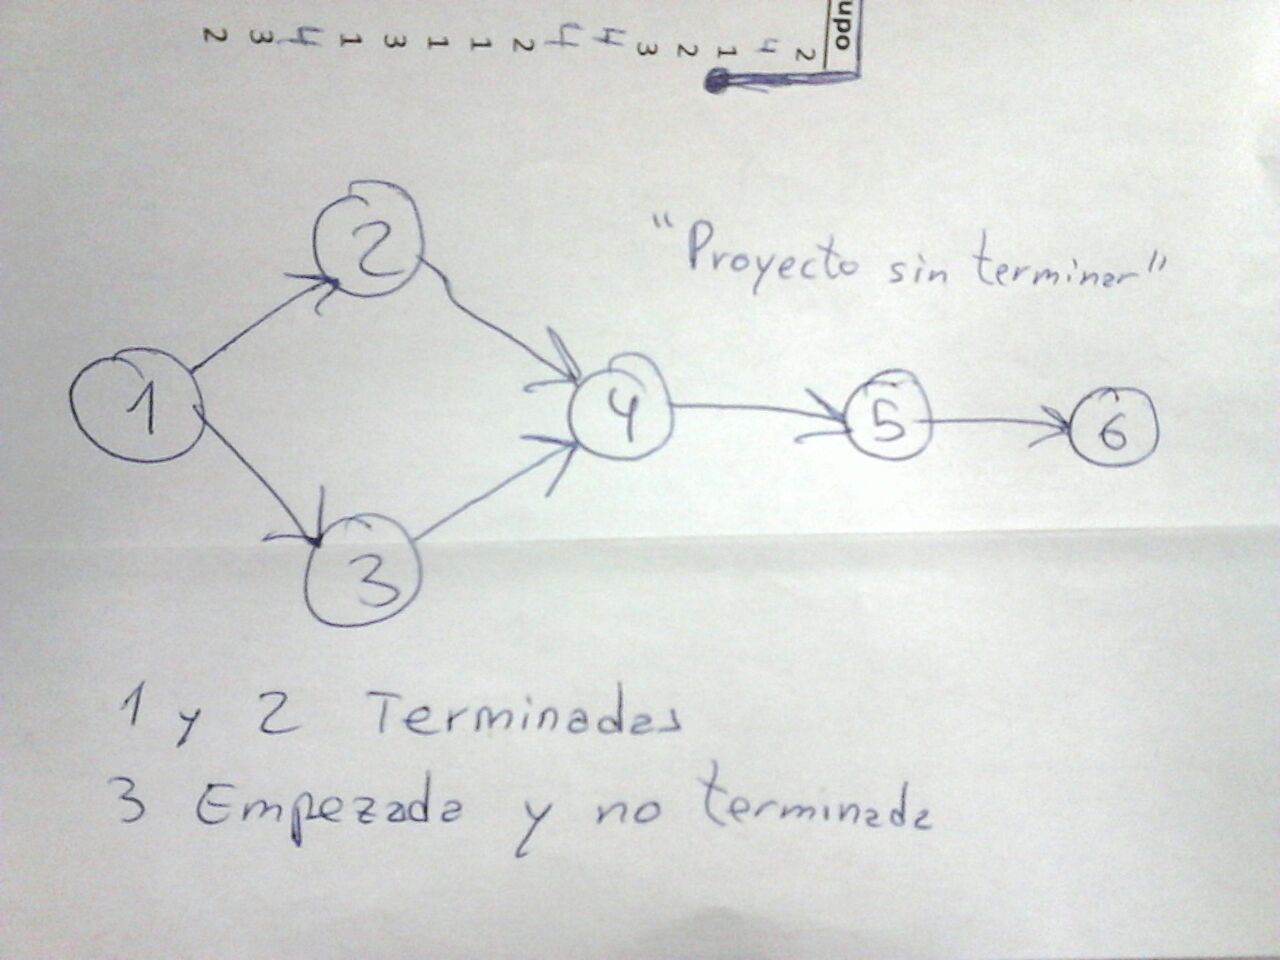 upo
2 3 4 1 3 1 1 2 4 4 3 2 1 4 2
"Proyecto sin terminar"
2
1 4 5 6
3
1 y 2 Terminadas
3 Empezada y no terminada